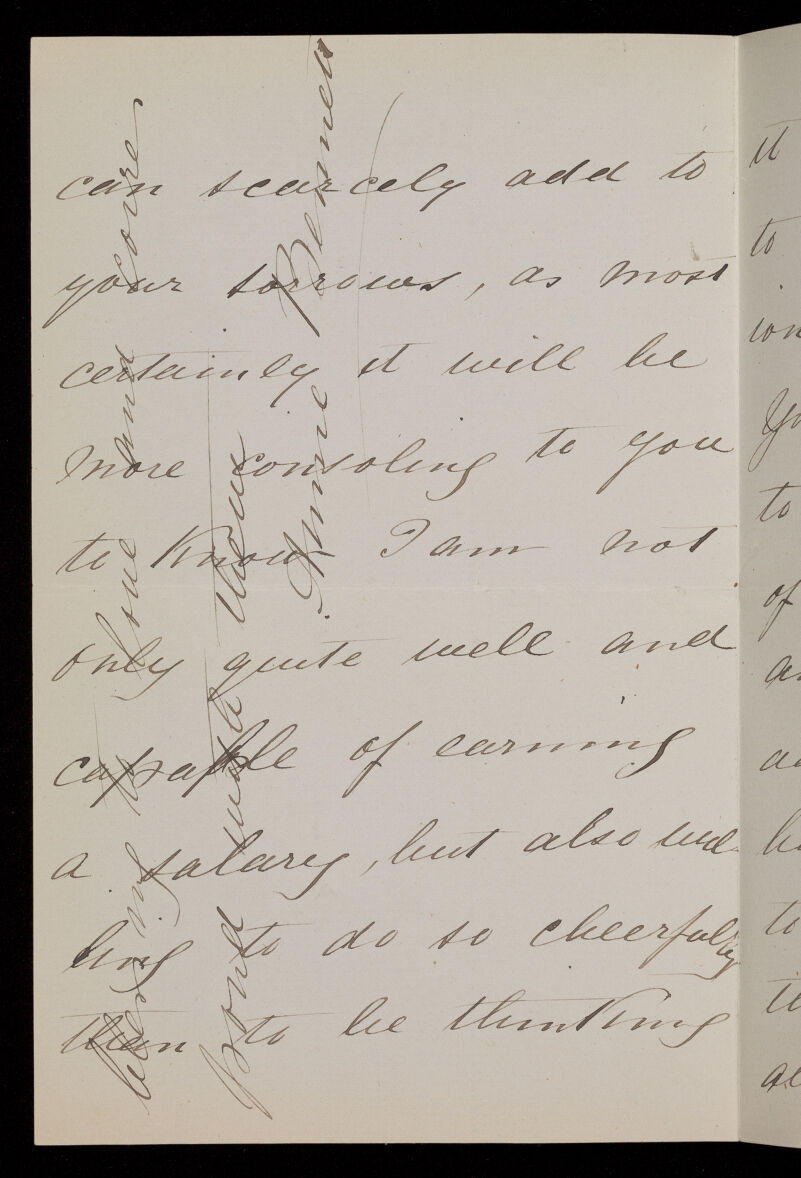 can scarcely add to
your sorrows, as most
certainly it will be
more consoling to you
to know I am not
only quite well and
capable of earning
a salary, but also wil-
ling to do so cheerfully
than to be thinking
to love and corre
spond with them
Annie Bennett
it
to
to
of
to